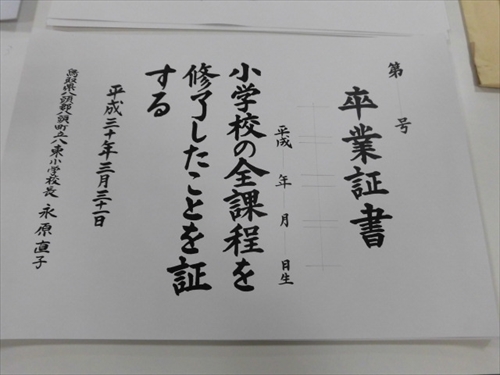 卒業証書
第 号
平成 年 月 日生
小学校の全課程を
修了したことを証
する
平成三十年三月三十一日
鳥取県八頭郡八頭町立八東小学校長 永原直子